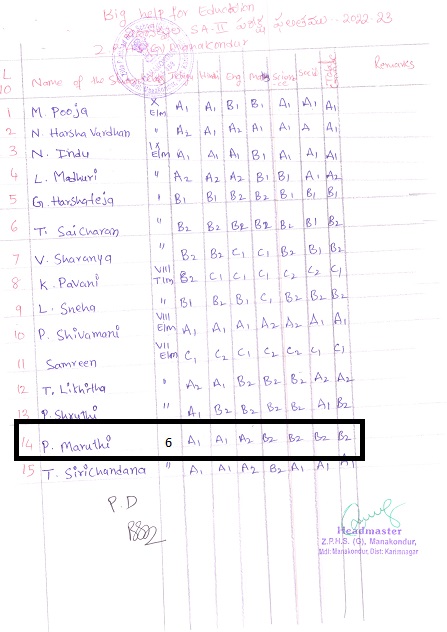 Big help for Education
SA-II 2022-23
Z.P.H.S (G) Manakondur
Name of the Student Class Telugu Hindi Eng Maths Science Social Grade Remarks
1 M. Pooja X E/m A1 A1 B1 B1 A1 A1 A1
2 N. Harsha Vardhan " A2 A1 A2 A1 A1 A A1
3 N. Indu IX E/m A1 A1 A1 B1 A1 A1 A1
4 L. Madhuri " A2 A2 A2 B1 B1 A1 A2
5 G. Harshateja " B1 B1 B2 B2 B1 B1 B1
6 T. Saicharan " B2 B2 B2 B2 B2 B1 B2
7 V. Sharanya " B2 B2 C1 C1 B2 B2 B2
8 K. Pavani VIII T/m B2 C1 C1 C1 C2 C2 C1
9 L. Sneha " B1 B2 B1 C1 B2 B2 B2
10 P. Shivamani VIII E/m A1 A1 A1 A2 A2 A1 A1
11 Samreen VII E/m C1 C2 C1 C2 C2 C1 C1
12 T. Likhitha " A2 A1 B2 B2 B2 A2 A2
13 P. Shruthi " A1 B2 B2 B2 B2 A1 B2
14 P. Maruthi 6 A1 A1 A2 B2 B2 B2 B2
15 T. Sirichandana " A1 A1 A2 B2 A1 A1 A1
P.D
Headmaster
Z.P.H.S. (G), Manakondur,
Mdl: Manakondur, Dist: Karimnagar